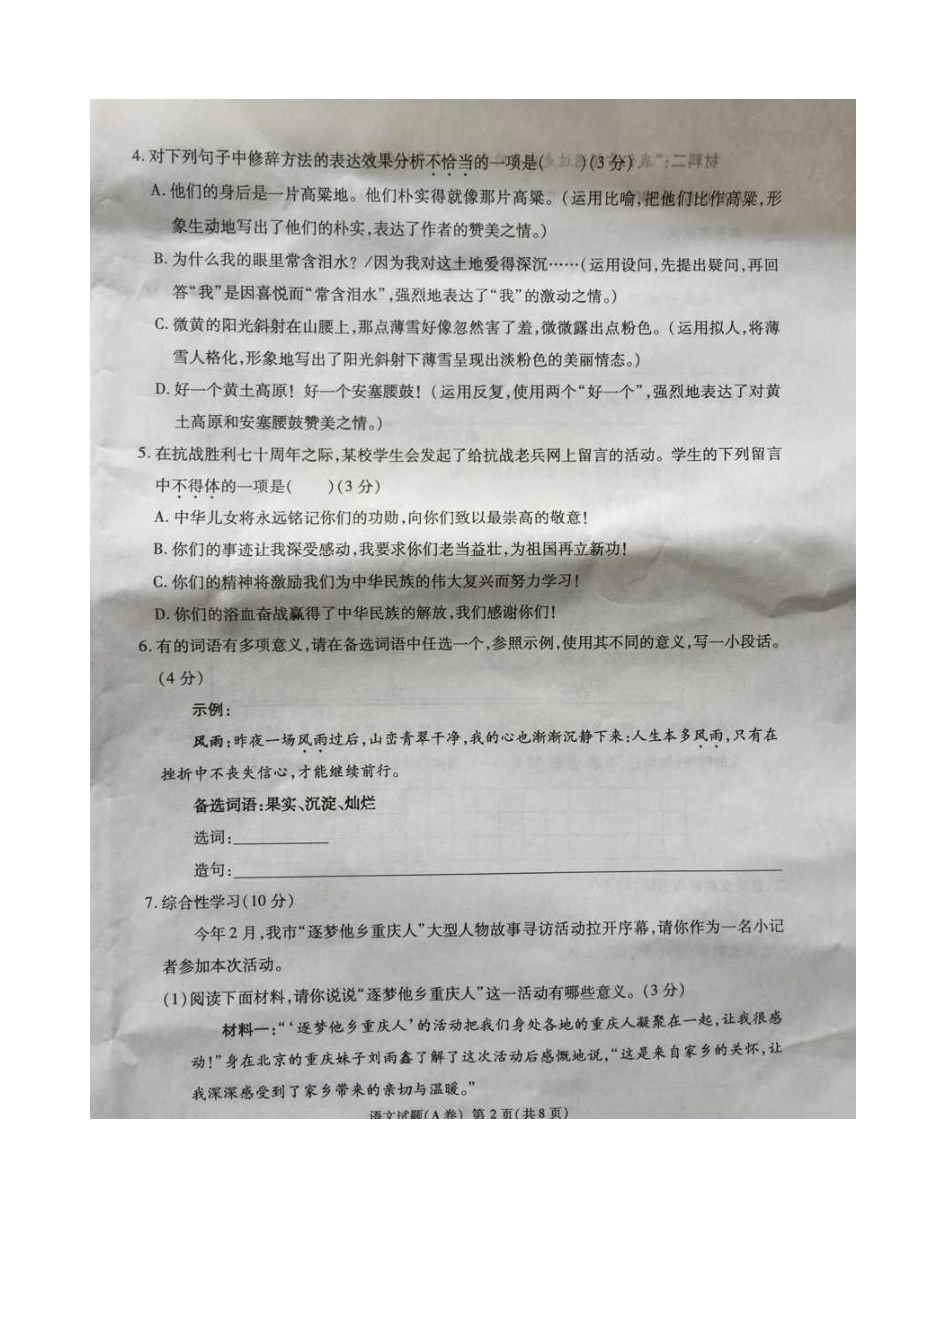 4.对下列句子中修辞方法的表达效果分析不恰当的一项是(　　)(3分)
A.他们的身后是一片高粱地。他们朴实得就像那片高粱。(运用比喻,把他们比作高粱,形
象生动地写出了他们的朴实,表达了作者的赞美之情。)
B.为什么我的眼里常含泪水？/因为我对这土地爱得深沉……(运用设问,先提出疑问,再回
答“我”是因喜悦而“常含泪水”,强烈地表达了“我”的激动之情。)
C.微黄的阳光斜射在山腰上,那点薄雪好像忽然害了羞,微微露出点粉色。(运用拟人,将薄
雪人格化,形象地写出了阳光斜射下薄雪呈现出淡粉色的美丽情态。)
D.好一个黄土高原！好一个安塞腰鼓！(运用反复,使用两个“好一个”,强烈地表达了对黄
土高原和安塞腰鼓赞美之情。)
5.在抗战胜利七十周年之际,某校学生会发起了给抗战老兵网上留言的活动。学生的下列留言
中不得体的一项是(　　)(3分)
A.中华儿女将永远铭记你们的功勋,向你们致以最崇高的敬意！
B.你们的事迹让我深受感动,我要求你们老当益壮,为祖国再立新功！
C.你们的精神将激励我们为中华民族的伟大复兴而努力学习！
D.你们的浴血奋战赢得了中华民族的解放,我们感谢你们！
6.有的词语有多项意义,请在备选词语中任选一个,参照示例,使用其不同的意义,写一小段话。
(4分)
示例：
风雨：昨夜一场风雨过后,山峦青翠干净,我的心也渐渐沉静下来;人生本多风雨,只有在
挫折中不丧失信心,才能继续前行。
备选词语：果实、沉淀、灿烂
选词：
造句：
7.综合性学习(10分)
今年2月,我市“逐梦他乡重庆人”大型人物故事寻访活动拉开序幕,请你作为一名小记
者参加本次活动。
(1)阅读下面材料,请你说说“逐梦他乡重庆人”这一活动有哪些意义。(3分)
材料一：“‘逐梦他乡重庆人’的活动把我们身处各地的重庆人凝聚在一起,让我很感
动！”身在北京的重庆妹子刘雨鑫了解了这次活动后感慨地说,“这是来自家乡的关怀,让
我深深感受到了家乡带来的亲切与温暖。”
语文试题(A卷)　第2页(共8页)